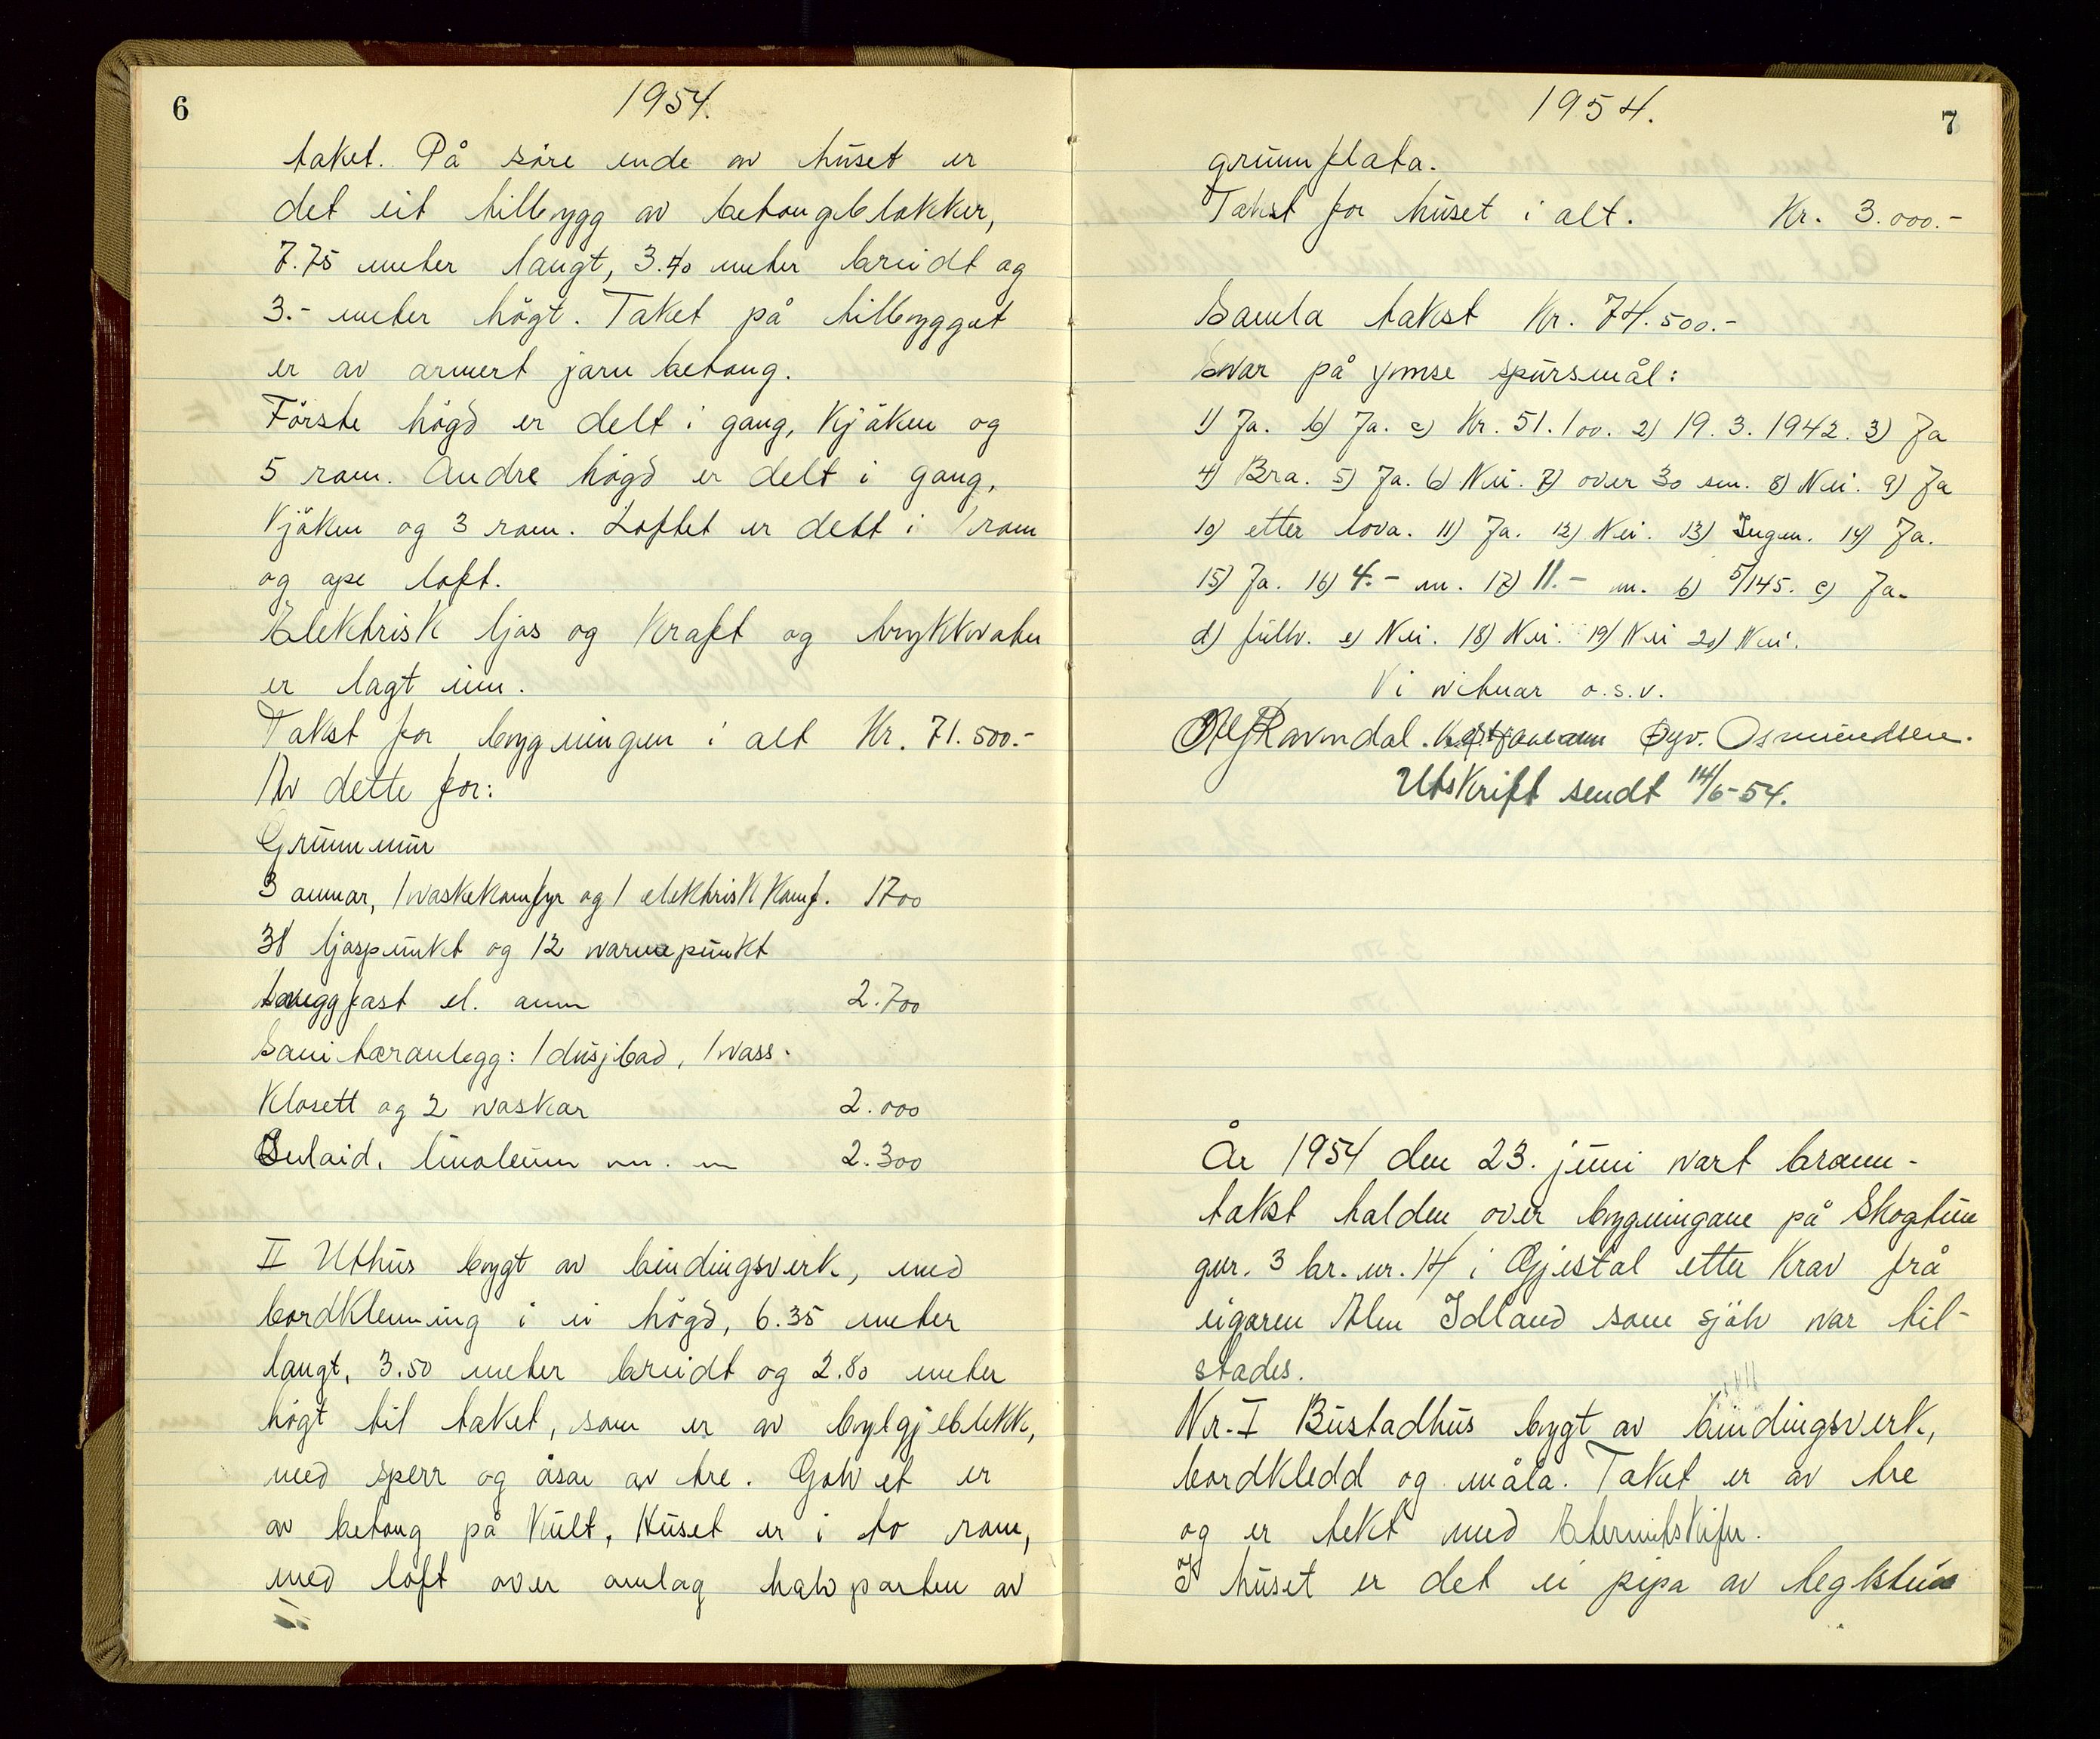 6
1954.
taket. På søre ende av huset er
det eit tilbygg av betongblokker,
7.75 meter langt, 3.70 meter breidt og
3.- meter högt. Taket på tilbygget
er av armert jarn betong.
Förste högd er delt i gang, kjöken og
5 rom. Andre högd er delt i gang,
kjöken og 3 rom. Loftet er delt i 1 rom
og ope loft.
Elektrisk ljos og kraft og trykkvatn
er lagt inn.
Takst for bygningen i alt Kr. 71.500.-
Av dette for:
Grunnmur
3 omnar, 1 vaskekomfyr og 1 elektrisk komf. 1700
38 ljospunkt og 12 varmepunkt
veggfast el. omn 2.700
Sanitæranlegg: 1 dusjbad, 1 vass-
klosett og 2 vaskar 2.000
Inlaid, linoleum m. m 2.300
II Uthus bygt av bindingsverk, med
bordklenning i ei högd, 6.35 meter
langt, 3.50 meter breidt og 2.80 meter
högt til taket, som er av bylgjeblekk,
med sperr og åsar av tre. Golvet er
av betong på kult. Huset er i to rom,
med loft over omlag halvparten av
1954.
7
grunnflata.
Takst for huset i alt. Kr. 3.000.-
Samla takst Kr. 74.500.-
Svar på ymse spursmål:
1) Ja. b) Ja. c) Kr. 51.100. 2) 19.3.1942. 3) Ja
4) Bra. 5) Ja. 6) Nei. 7) over 30 sm. 8) Nei. 9) Ja
10) etter lova. 11) Ja. 12) Nei. 13) Ingen. 14) Ja.
15) Ja. 16) 4.- m. 17) 11.- m. b) 5/145. c) Ja.
d) fullv. e) Nei. 18) Nei. 19) Nei 20) Nei.
Vi vitnar o.s.v.
Ravndal. Øyv. Osmundsen.
Utskrift sendt 14/6-54.
År 1954 den 23. juni vart brann-
takst halden over bygningane på Skogtun
gnr. 3 br. nr. 14 i Gjestal etter krav frå
eigaren Alm Idland som sjölv var til-
stades.
Nr. I Bustadhus bygt av bindingsverk,
bordkledd og måla. Taket er av tre
og er tekt med Eternitskifer.
I huset er det ei pipa av teglstein